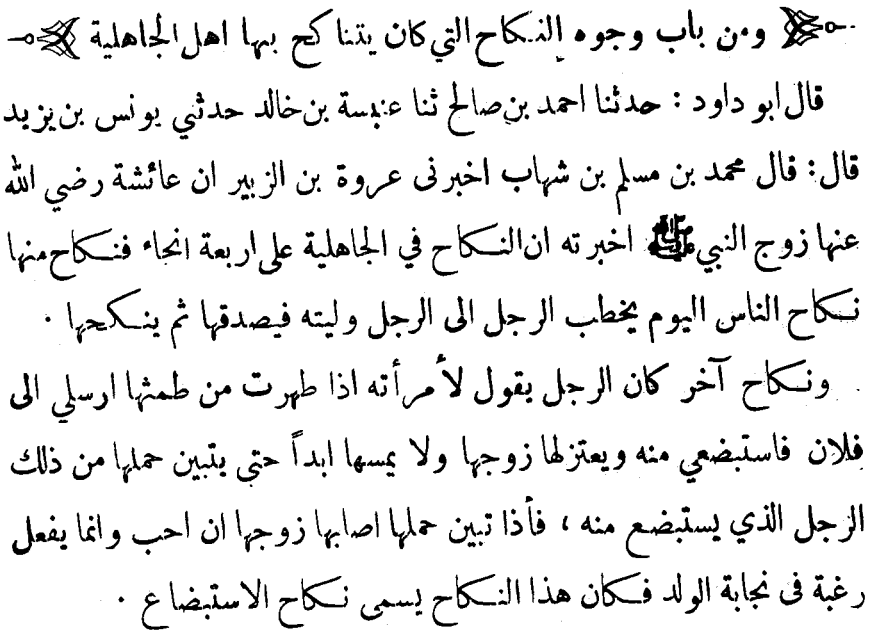 ومن باب وجوه النكاح التي كان يتناكح بها اهل الجاهلية
قال ابو داود : حدثنا احمد بن صالح ثنا عنبسة بن خالد حدثني يونس بن يزيد
قال : قال محمد بن مسلم بن شهاب اخبرنى عروة بن الزبير ان عائشة رضي الله
عنها زوج النبي ﷺ اخبرته ان النكاح في الجاهلية على اربعة انحاء فنكاح منها
نكاح الناس اليوم يخطب الرجل الى الرجل وليته فيصدقها ثم ينكحها ٠
ونكاح آخر كان الرجل يقول لأمرأته اذا طهرت من طمثها ارسلي الى
فلان فاستبضعي منه ويعتزلها زوجها ولا يمسها ابداً حتى يتبين حملها من ذلك
الرجل الذي يستبضع منه ، فأذا تبين حملها اصابها زوجها ان احب وانما يفعل
رغبة فى نجابة الولد فكان هذا النكاح يسمى نكاح الاستبضاع ٠